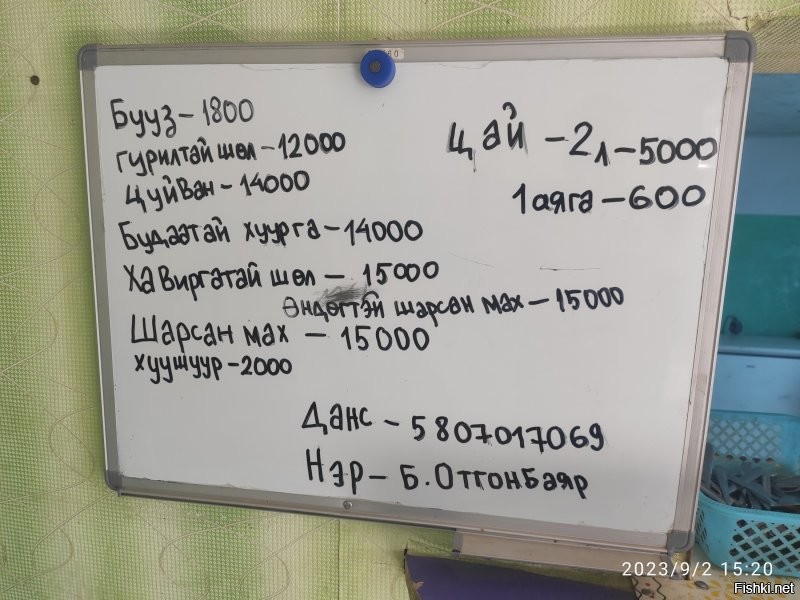 Бууз-1800
гурилтай шөл-12000
Цуйван-14000
Будаатай хуурга-14000
Хавиргатай шөл-15000
Өндөгтэй шарсан мах-15000
Шарсан мах-15000
хуушуур-2000
Цай-2л-5000
1аяга-600
Данс-5807017069
Нэр-Б.Отгонбаяр
2023/9/2 15:20
Fishki.net